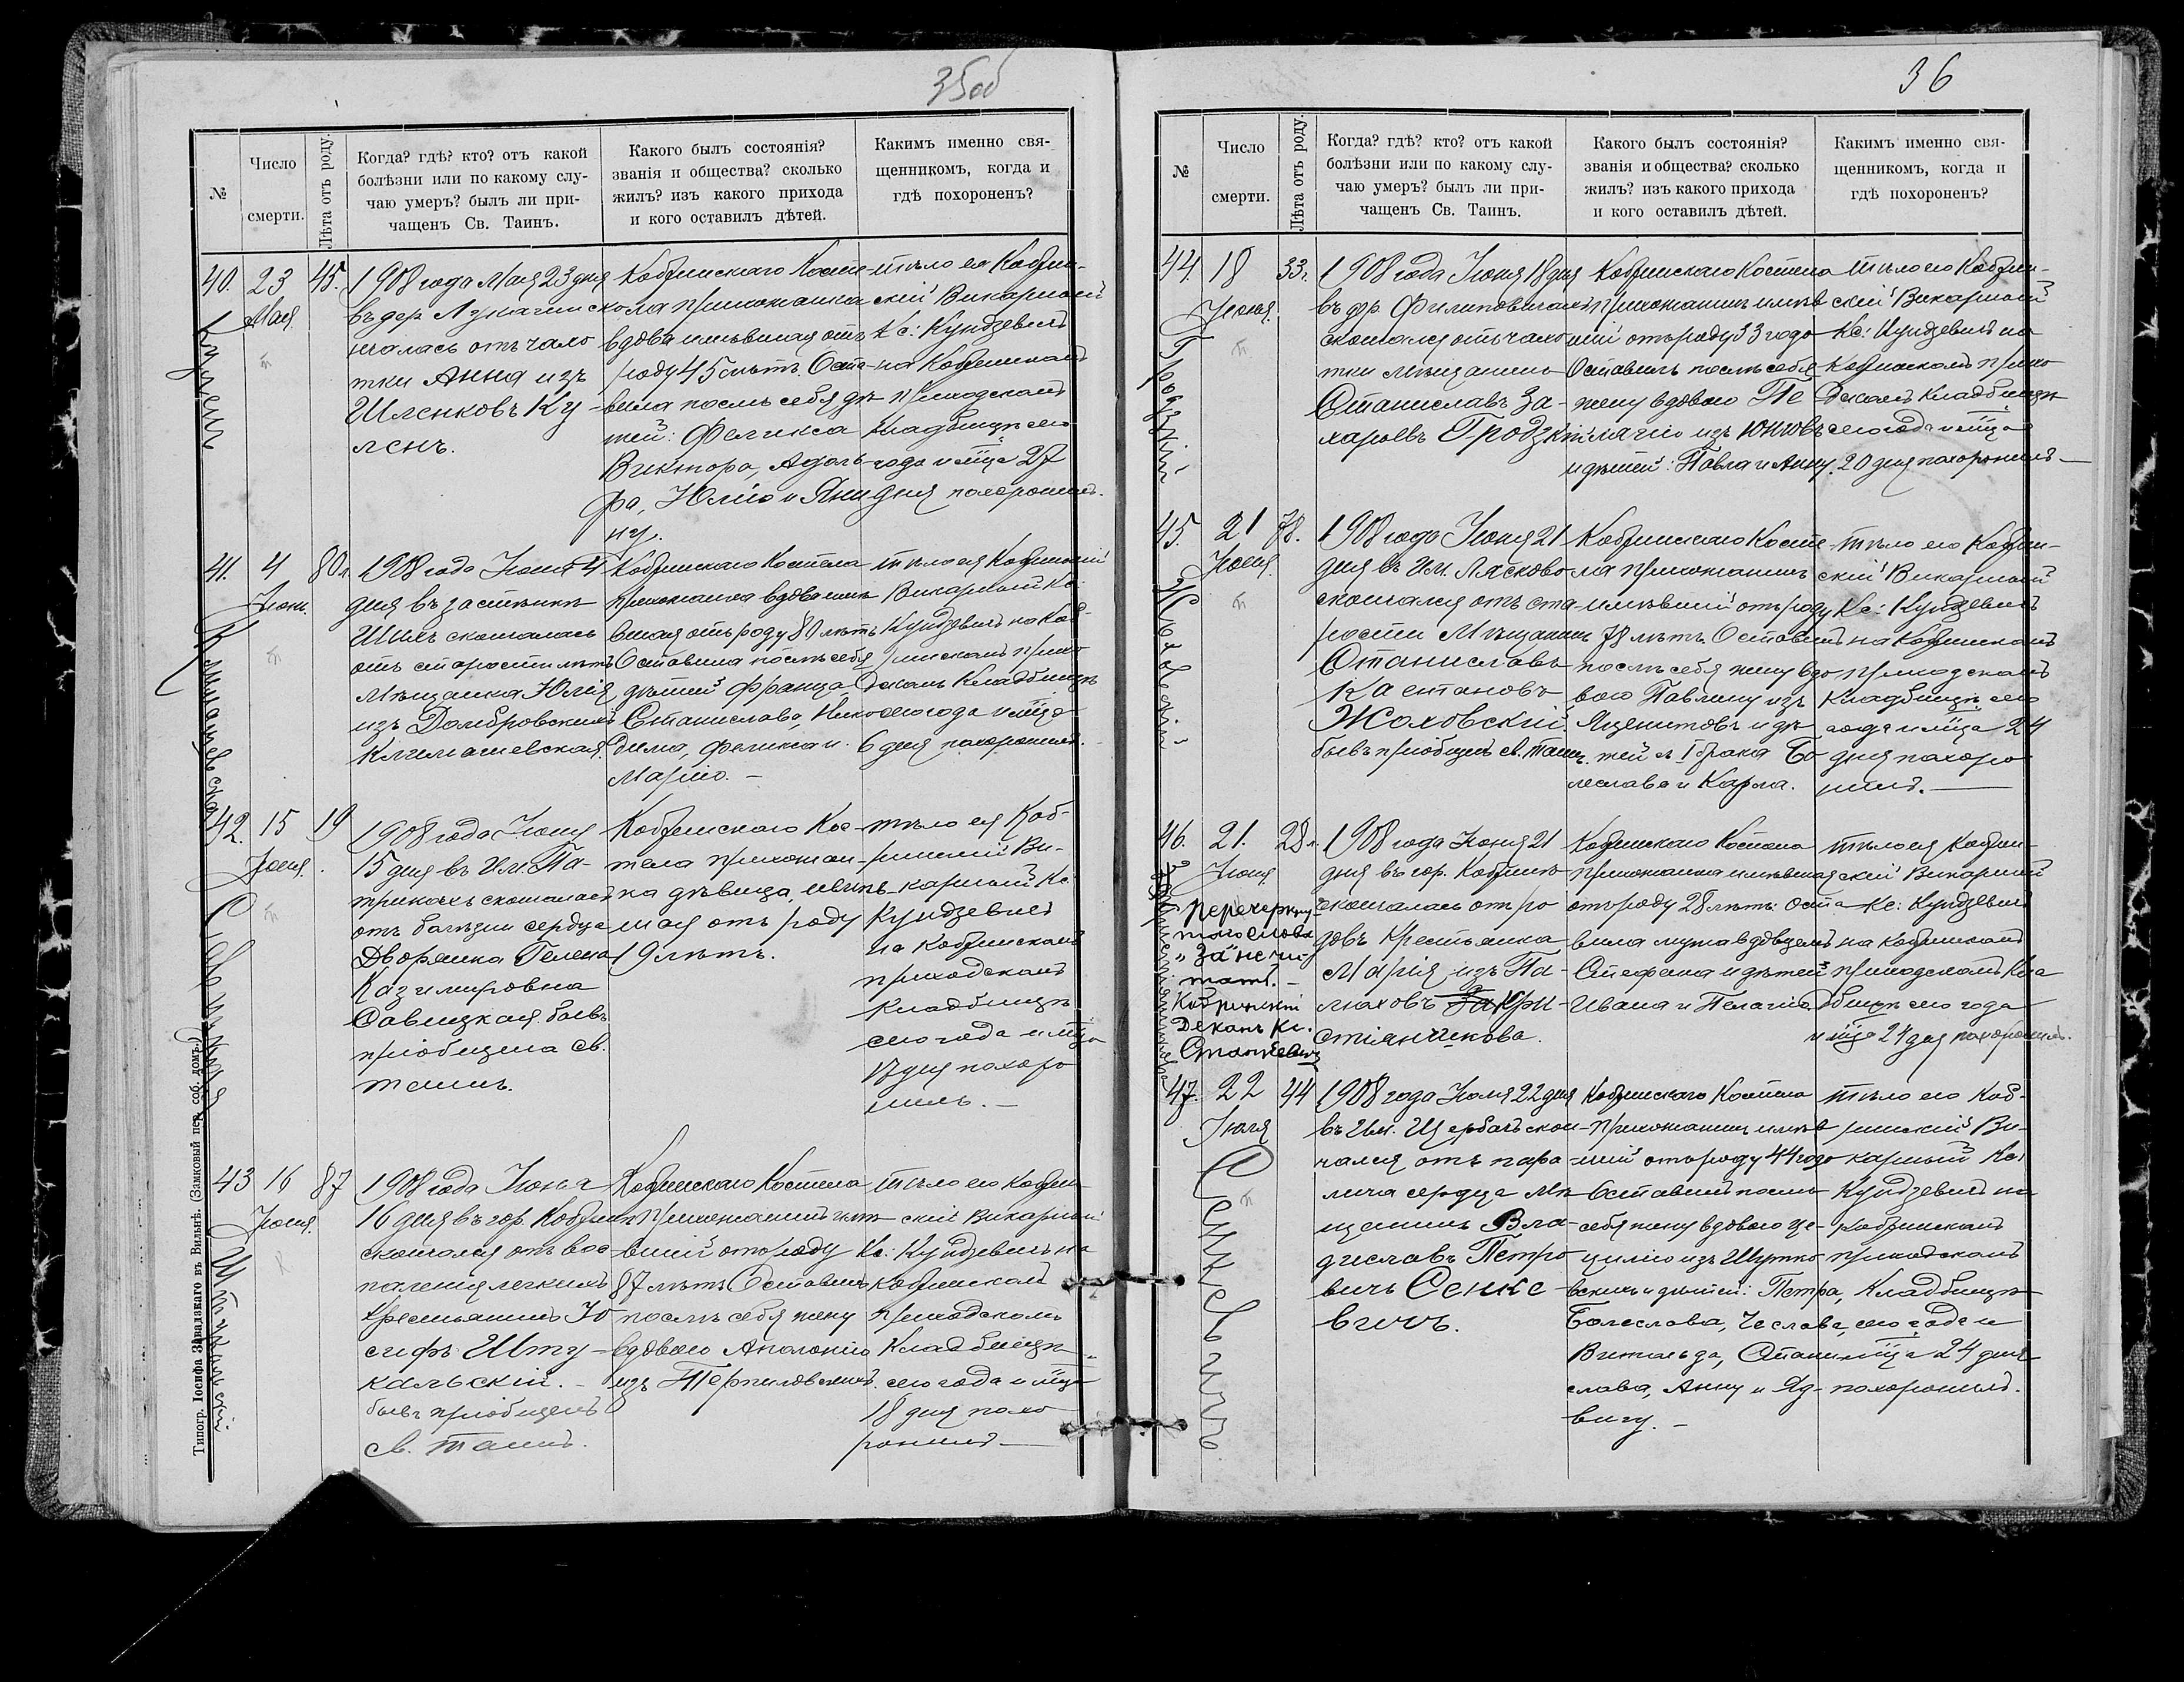 35об
№
Число
смерти.
Лѣта отъ роду.
Когда? гдѣ? кто? отъ какой
болѣзни или по какому слу-
чаю умеръ? былъ ли при-
чащенъ Св. Таинъ.
Какого былъ состоянія?
званія и общества? сколько
жилъ? изъ какого прихода
и кого оставилъ дѣтей.
Какимъ именно свя-
щенникомъ, когда и
гдѣ похороненъ?
40.
23
Мая
45.
Куленъ
1908 года Мая 23 дня
въ дер. скон-
чалась отъ чахо
тки Анна изъ
Шленковъ Ку-
ленъ.
Кобринскаго Косте-
ла прихожанка
вдова имѣвшая отъ
роду 45 лѣтъ. Оста-
вила послѣ себя дѣ-
тей: Феликса
Виктора, Адоль-
фа, Юлію и Яни-
ну.
тѣло ея Кобрин-
скій Викарный
Кс: Кундзевичъ
на Кобринскомъ
приходскомъ
кладбищѣ сего
года и м-ца 27
дня похоронилъ.
41.
4
Іюня
80 л
Климашевская
1908 года Іюня 4
дня въ застѣнкѣ
скончалась
отъ старости лѣтъ
Мѣщанка Юлія
изъ Домбровскихъ
Климашевская.
Кобринскаго Костела
прихожанка вдова имѣ-
вшая отъ роду 80 лѣтъ
Оставила послѣ себя
дѣтей Франца
Станислава, Нико-
дима, Феликса и
Марію. —
тѣло ея Кобринскій
Викарный Кс:
Кундзевичъ на Коб-
ринскомъ прихо
дскомъ Кладбищѣ
сего года и м-ца
6 дня похоронилъ.
42.
15
Іюня.
19
Савицкая
1908 года Іюня
15 дня въ Им. Па-
трикахъ скончалась
отъ болѣзни сердца
Дворянка Гелена
Казимировна
Савицкая. бывъ
пріобщена св.
таинъ.
Кобринскаго Кос-
тела прихожан-
ка дѣвица, имѣв-
шая отъ роду
19 лѣтъ.
тѣло ея Коб-
ринскій Ви-
карный Кс:
Кундзевичъ
на Кобринскомъ
приходскомъ
Кладбищѣ
сего года и м-ца
17 дня похоро
нилъ. —
43
16
Іюня.
87
Штукальскій
1908 года Іюня
16 дня въ гор. Кобринѣ
скончался отъ вос-
паленія легкихъ
Крестьянинъ Іо
сифъ Шту-
кальскій. —
бывъ пріобщенъ
св. таинъ.
Кобринскаго Костела
прихожанинъ имѣ-
вшій отъ роду
87 лѣтъ Оставилъ
послѣ себя жену
вдовою Аполонію
изъ
тѣло его Кобрин
скій Викарный
Кс: Кундзевичъ на
Кобринскомъ
приходскомъ
Кладбищѣ
сего года и м-ца
18 дня похо
ронилъ —
Типогр. Іосифа Завадзкаго въ Вильнѣ. (Замковый пер. соб. домъ.)
36
№
Число
смерти.
Лѣта отъ роду.
Когда? гдѣ? кто? отъ какой
болѣзни или по какому слу-
чаю умеръ? былъ ли при-
чащенъ Св. Таинъ.
Какого былъ состоянія?
званія и общества? сколько
жилъ? изъ какого прихода
и кого оставилъ дѣтей.
Какимъ именно свя-
щенникомъ, когда и
гдѣ похороненъ?
44.
18
Іюня.
33 г.
Гродзкій
1908 года Іюня 18 дня
въ др. Филиповичахъ
скончался отъ чахо-
тки мѣщанинъ
Станиславъ За-
харьевъ Гродзкій
Кобринскаго Костела
прихожанинъ имѣв
шій отъ роду 33 года
Оставилъ послѣ себя
жену вдовою Пе
лагію изъ Юновъ
и дѣтей: Павла и Анну.
тѣло его Кобрин-
скій Викарный
Кс: Кундзевичъ на
Кобринскомъ прихо
дскомъ Кладбищѣ
сего года и м-ца
20 дня похоронилъ —
45.
21
Іюня.
78.
Жоховскій
1908 года Іюня 21
дня въ Им. Лясково
скончался отъ ста-
рости Мѣщанинъ
Станиславъ
Каетановъ
Жоховскій.
бывъ пріобщенъ св. таинъ.
Кобринскаго Косте-
ла прихожанинъ
имѣвшій отъ роду
78 лѣтъ. Оставилъ
послѣ себя жену вдо
вою Павлину изъ
и дѣ-
тей съ I брака Бо
леслава и Карла.
тѣло его Кобрин-
скій Викарный
Кс: Кундзевичъ
на Кобринскомъ
приходскомъ
Кладбищѣ сего
года и м-ца 24
дня похоро
нилъ. —
46.
21.
Іюня
28 л.
Перечеркну-
таго слова
„За" не чи-
тать. —
Кобринскій
Деканъ Кс.
1908 года Іюня 21
дня въ гор. Кобринѣ
скончалась отъ ро
довъ Крестьянка
Марія изъ Па-
ляховъ За Кри-
стіянчикова.
Кобринскаго Костела
прихожанка имѣвшая
отъ роду 28 лѣтъ: Оста-
вила мужа вдовцемъ
Стефана и дѣтей
Ивана и Пелагію.
тѣло ея Кобрин-
скій Викарный
Кс: Кундзевичъ
на Кобринскомъ
приходскомъ Кла
дбищѣ сего года
и м-ца 24 дня похоронилъ.
47.
22
Іюля
44
Сенкевичъ
1908 года Іюля 22 дня
въ Им. скон-
чался отъ пара-
лича сердца Мѣ
щанинъ Вла-
диславъ Петро
вичъ Сенке-
вичъ.
Кобринскаго Костела
прихожанинъ имѣв
шій отъ роду 44 года
Оставилъ послѣ
себя жену вдовою Це-
цилію изъ Шутко-
вскихъ и дѣтей: Петра,
Болеслава, Чеслава,
Витольда, Стани-
слава, Анну и Яд-
вигу. —
тѣло его Коб-
ринскій Ви-
карный Кс:
Кундзевичъ на
Кобринскомъ
приходскомъ
Кладбищѣ
сего года и
м-ца 24 дня
похоронилъ.